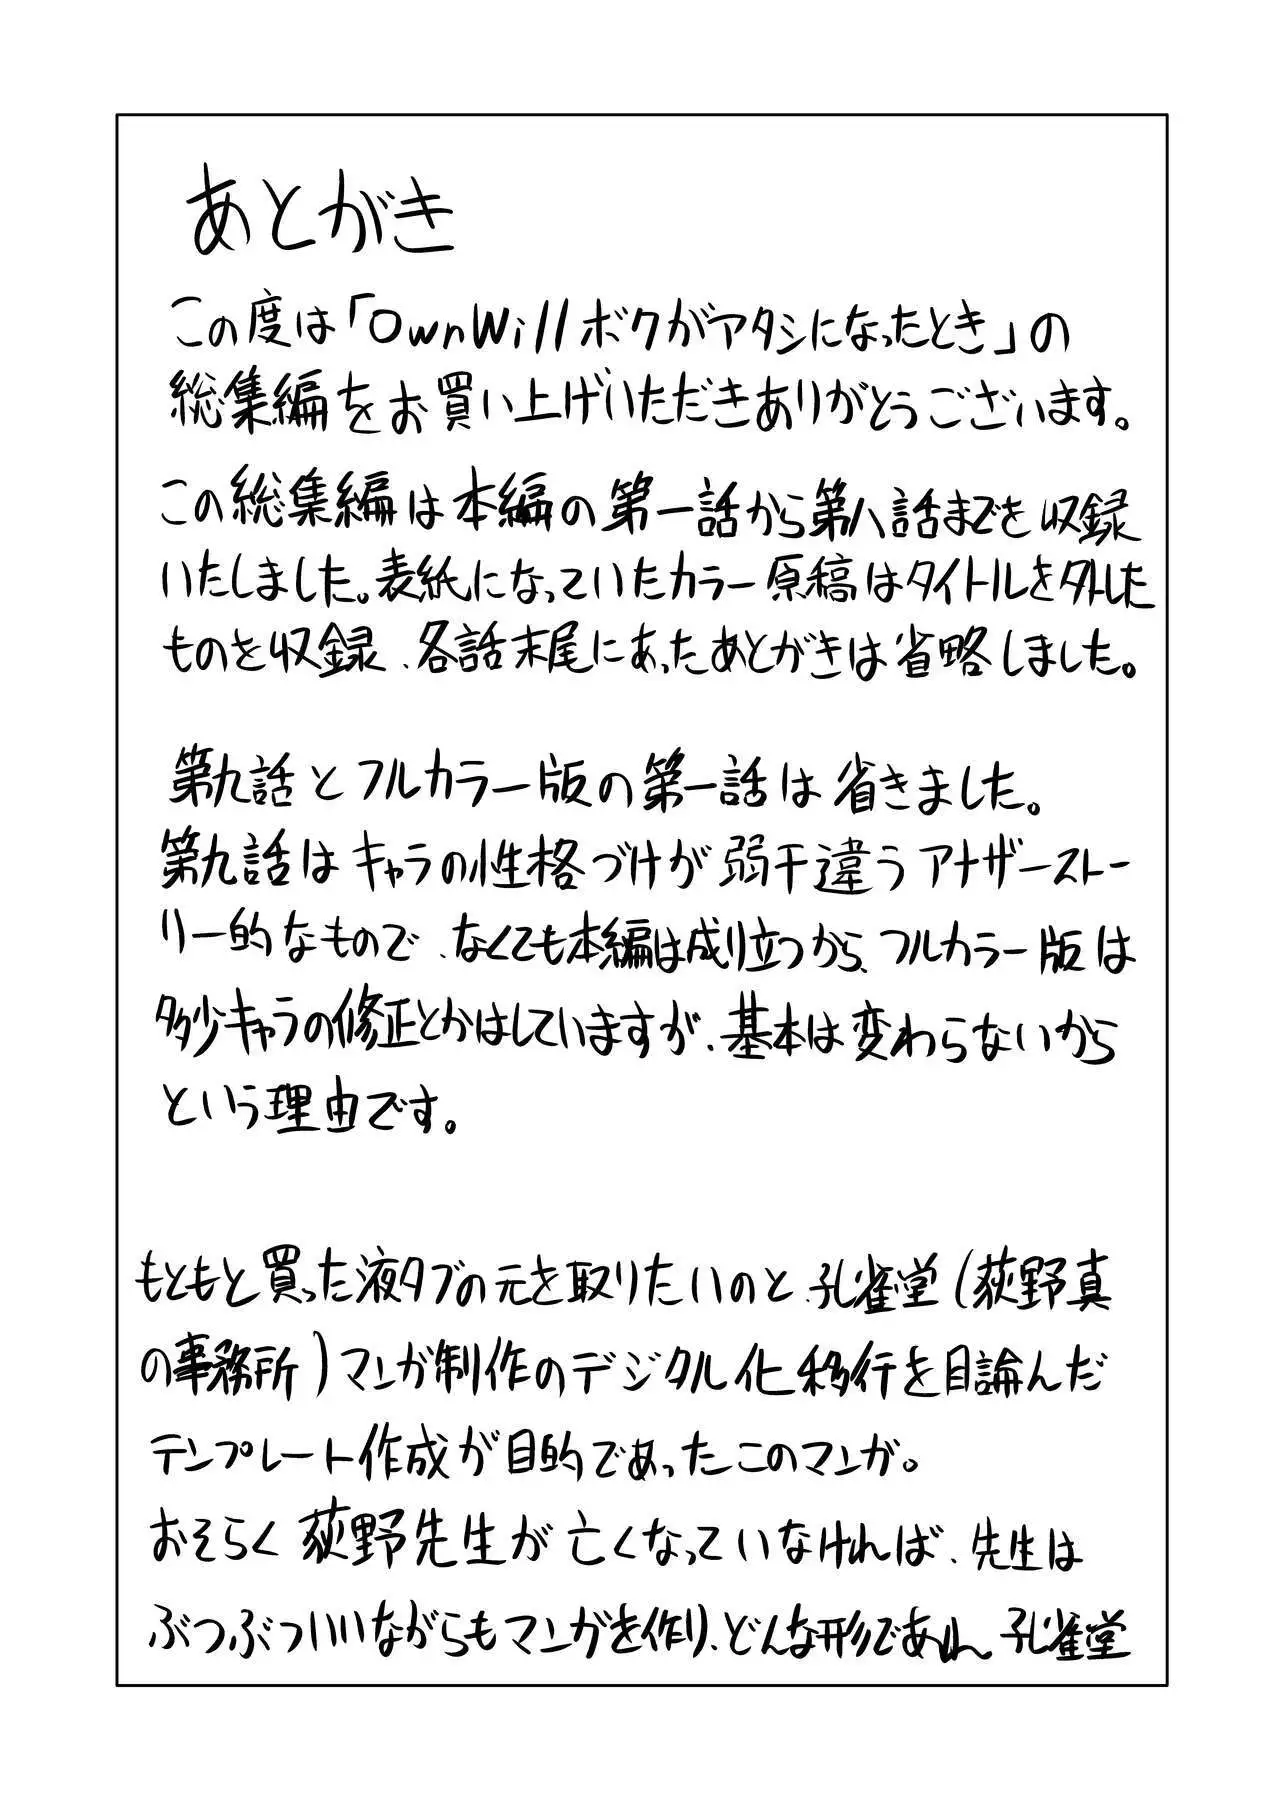 あとがき
この度は「OwnWillボクがアタシになったとき」の
総集編をお買い上げいただきありがとうございます。
この総集編は本編の第一話から第八話までを収録
いたしました。表紙になっていたカラー原稿はタイトルを外した
ものを収録、各話末尾にあったあとがきは省略しました。
第九話とフルカラー版の第一話は省きました。
第九話はキャラの性格づけが弱干違うアナザーストー
リー的なもので、なくても本編は成り立つから、フルカラー版は
多少キャラの修正とかはしていますが、基本は変わらないから
という理由です。
もともと買った液タブの元を取りたいのと、孔雀堂(荻野真
の事務所)マンガ制作のデジタル化移行を目論んだ
テンプレート作成が目的であったこのマンガ。
おそらく荻野先生が亡くなっていなければ、先生は
ぶつぶついいながらもマンガを作り、どんな形であれ、孔雀堂